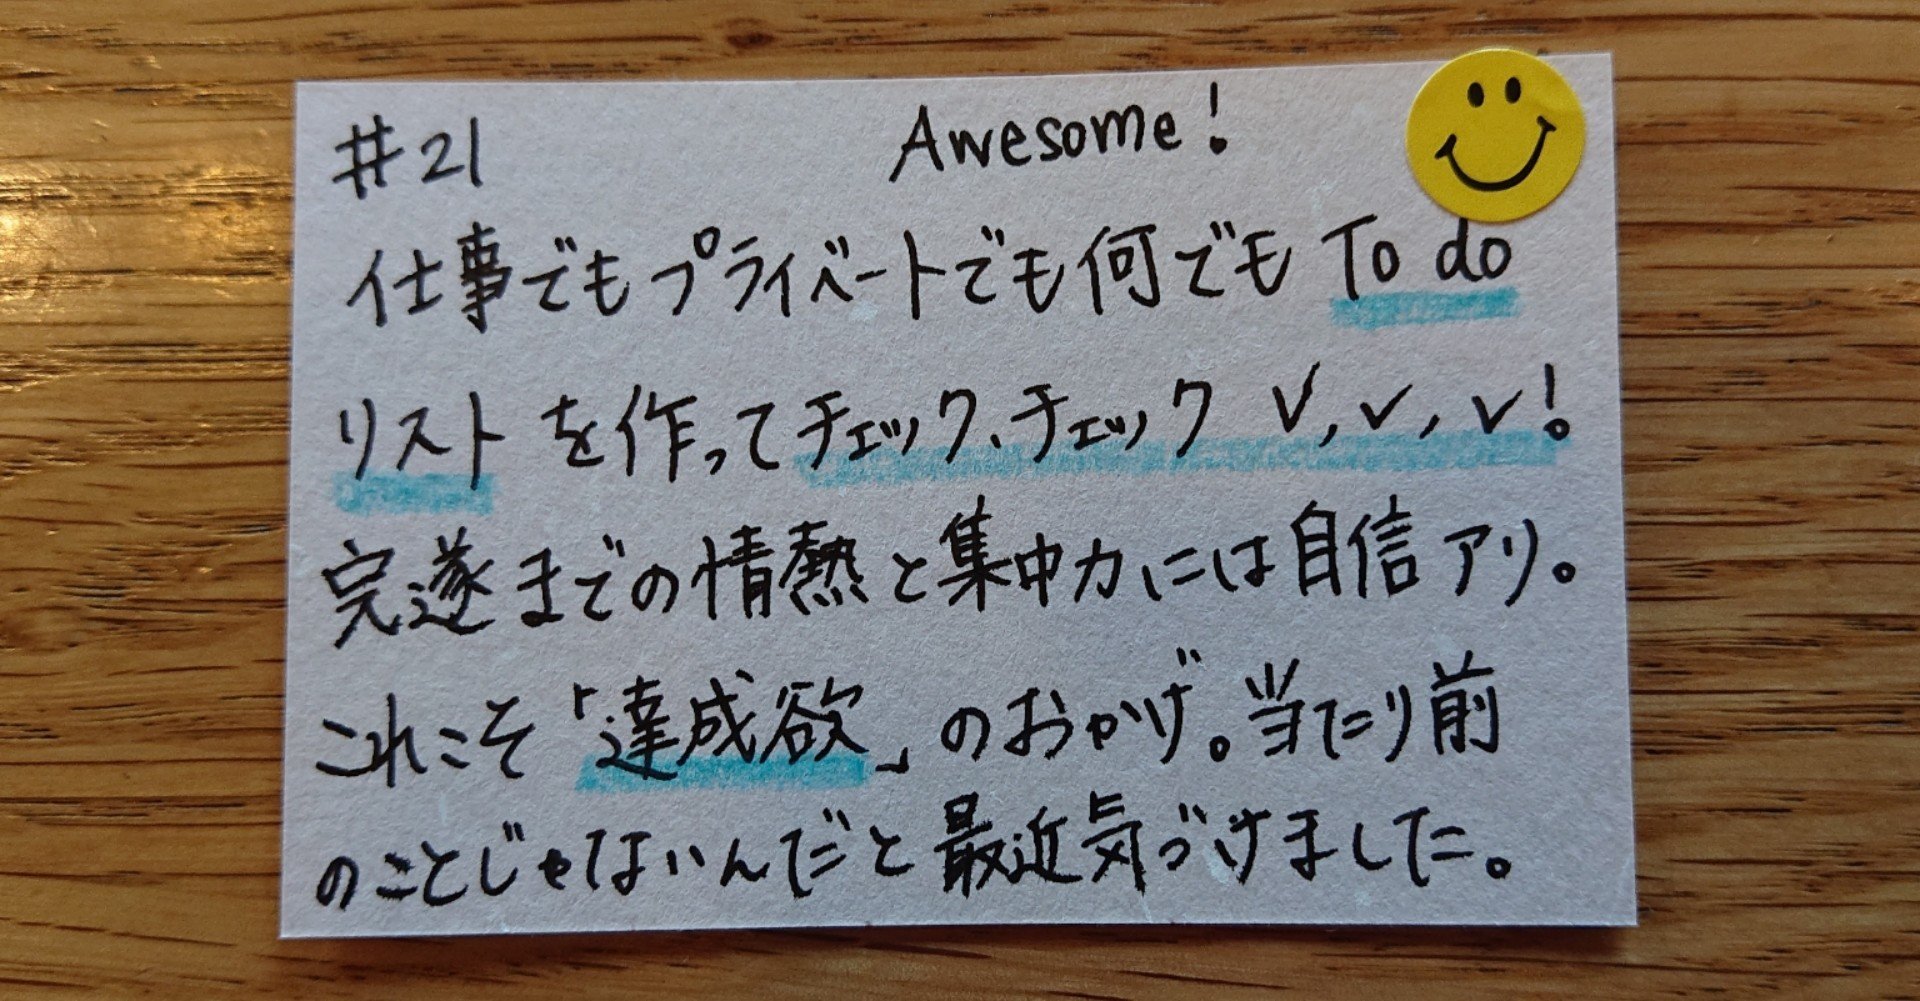 #21 Awesome!
仕事でもプライベートでも何でも To do
リストを作ってチェック、チェック ✓, ✓, ✓!
完遂までの情熱と集中力には自信アリ。
これこそ「達成欲」のおかげ。当たり前
のことじゃないんだと最近気づけました。